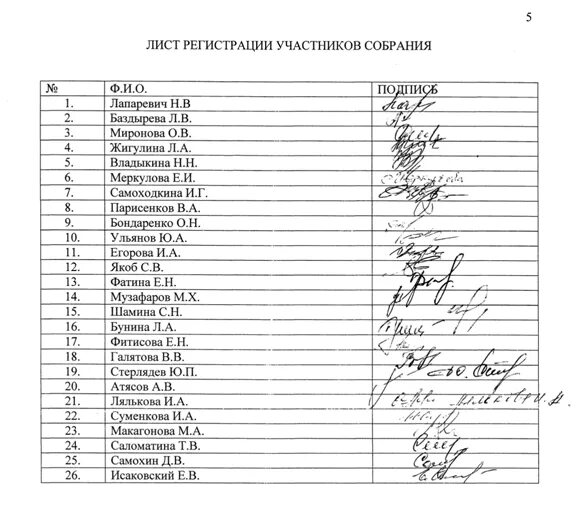 5
ЛИСТ РЕГИСТРАЦИИ УЧАСТНИКОВ СОБРАНИЯ
№ Ф.И.О. ПОДПИСЬ
1. Лапаревич Н.В
2. Баздырева Л.В.
3. Миронова О.В.
4. Жигулина Л.А.
5. Владыкина Н.Н.
6. Меркулова Е.И.
7. Самоходкина И.Г.
8. Парисенков В.А.
9. Бондаренко О.Н.
10. Ульянов Ю.А.
11. Егорова И.А.
12. Якоб С.В.
13. Фатина Е.Н.
14. Музафаров М.Х.
15. Шамина С.Н.
16. Бунина Л.А.
17. Фитисова Е.Н.
18. Галятова В.В.
19. Стерлядев Ю.П.
20. Атясов А.В.
21. Лялькова И.А.
22. Суменкова И.А.
23. Макагонова М.А.
24. Саломатина Т.В.
25. Самохин Д.В.
26. Исаковский Е.В.